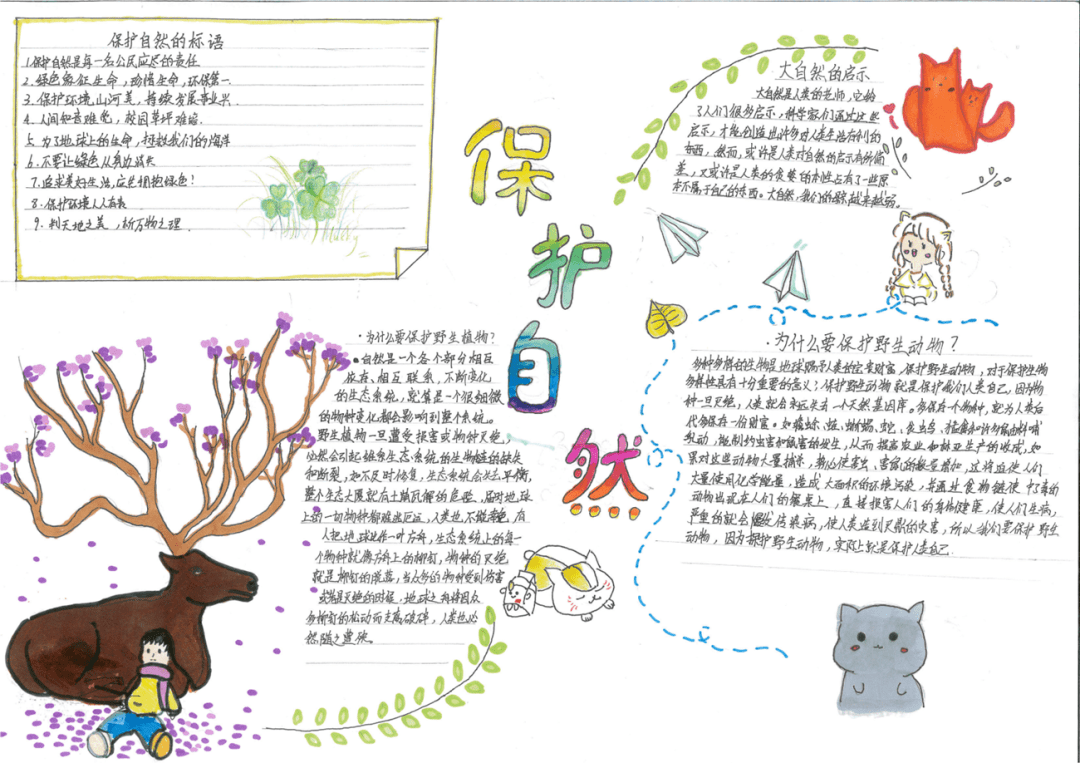 保护自然的标语
1.保护自然是每一名公民应尽的责任
2.绿色象征生命,珍惜生命,环保第一.
3.保护环境山河美,持续发展事业兴.
4.人间知音难觅,校园草坪难培.
5.为了地球上的生命,拯救我们的海洋
6.不要让绿色从身边消失
7.追求美好生活,应先拥抱绿色!
8.保护环境人人有责
9.判天地之美,析万物之理.
保护自然
大自然的启示
大自然是人类的老师,它给
了人们很多启示,科学家们通过这些
启示,才能创造出许多对人类生活有利的
东西,然而,或许是人类对自然的启示有所偏
差,又或许是人类的贪婪的本性占有了一些原
本不属于自己的东西。大自然,我们的家越来越弱。
·为什么要保护野生植物?
自然是一个各个部分相互
依存、相互联系,不断变化
的生态系统,就算是一个很细微
的物种变化都会影响到整个系统。
野生植物一旦遭受损害或物种灭绝,
必然会引起绿色生态系统的生物链的缺失
和断裂,如不及时修复,生态系统会失去平衡,
整个生态大厦就有土崩瓦解的危险,届时地球
上的一切物种都难逃厄运,人类也不能幸免,有
人把地球比作一叶方舟,生态系统上的每一
个物种就像方舟上的铆钉,物种的灭绝
就是铆钉的脱落,当众多的物种受到伤害
或者是灭绝的时候,地球之舟将因众
多铆钉的松动而支离破碎,人类也必
然随之遭殃。
·为什么要保护野生动物?
多种多样的生物是地球赐予人类的宝贵财富,保护野生动物,对于保护生物
多样性具有十分重要的意义;保护野生动物就是保护我们人类自己,因为物
种一旦灭绝,人类就会永远失去一个天然基因库。多保存一个物种,就为人类后
代多保存一份财富。如瓢虫、蛙、蜥蜴、蛇、食虫鸟、猛禽和许多食肉性哺
乳动,能制约虫害和鼠害的发生,从而提高农业和林业生产的收成,如
果对这些动物大量捕杀,势必使害虫、害鼠的数量增加,这将迫使人们
大量使用化学能量,造成大面积的环境污染,并通过食物链使中了毒的
动物出现在人们的餐桌上,直接损害人们的身体健康,使人们生病,
严重的就会爆发传染病,使人类遭到灭亡的灾害,所以我们要保护野生
动物,因为保护野生动物,实际上就是保护人类自己.